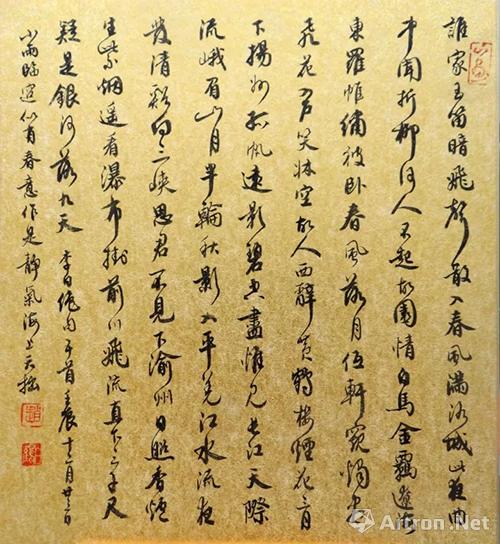 誰家玉笛暗飛聲散入春風滿洛城此夜曲
中聞折柳何人不起故園情白馬金羈遼海
東羅帷繡被臥春風落月低軒窺燭盡
飛花入戶笑牀空故人西辭黃鶴樓煙花三月
下揚州孤帆遠影碧空盡惟見長江天際
流峨眉山月半輪秋影入平羌江水流夜
發清谿向三峽思君不見下渝州日照香爐
生紫煙遙看瀑布掛前川飛流直下三千尺
疑是銀河落九天 李白絕句五首壬辰十二月廿三日
小雨臨窗似有春意作是靜氣海上天拙
Artron.Net